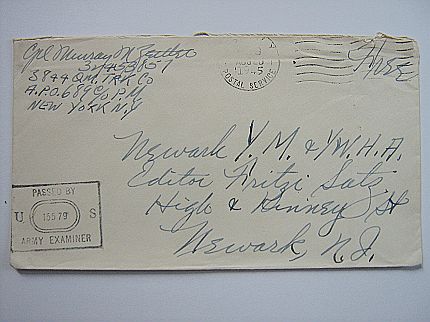 Cpl Murray M
32453857
3844 Q.M. TRK Co
A.P.O. 689 C/o P.M.
NEW YORK N.Y.
1945
POSTAL SERVICE
Free
Newark Y.M. & Y.W.H.A.
Editor Fritzi Satz
High & Kinney St
Newark, N.J.
PASSED BY
U 15579 S
ARMY EXAMINER